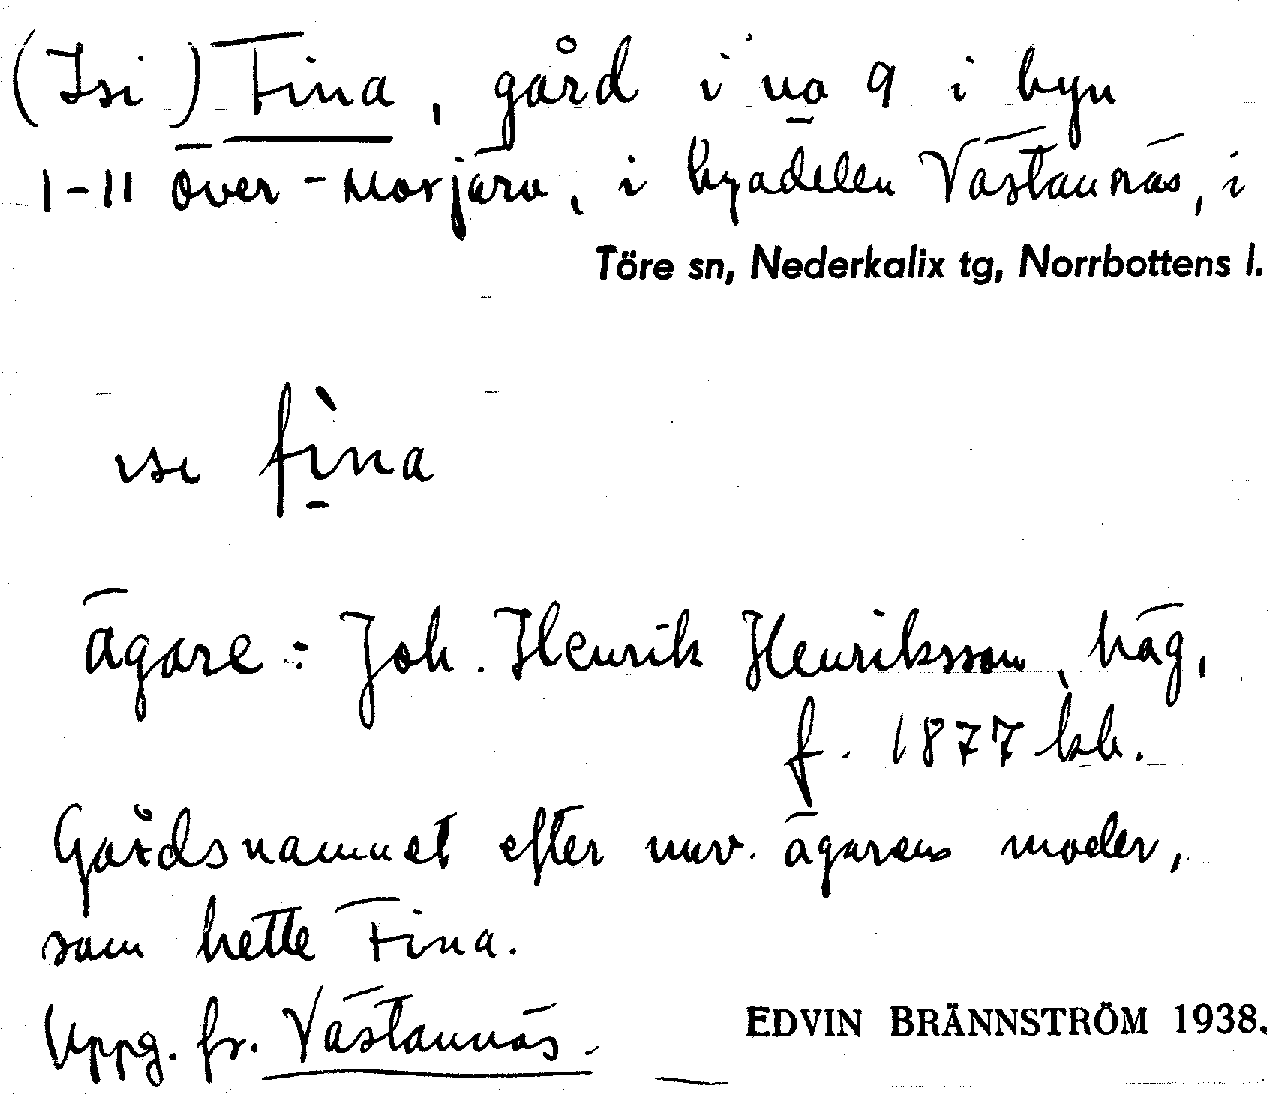 (Isi) Fina, gård i no 9 i byn
1-11 Över-Morjärv, i byadelen Västannäs, i
Töre sn, Nederkalix tg, Norrbottens l.
ɩsɩ fìna
ägare: Joh. Henrik Henriksson, häg,
f. 1877 kb.
Gårdsnamnet efter nuv. ägarens moder,
som hette Fina.
Uppg. fr. Västannäs.
EDVIN BRÄNNSTRÖM 1938.